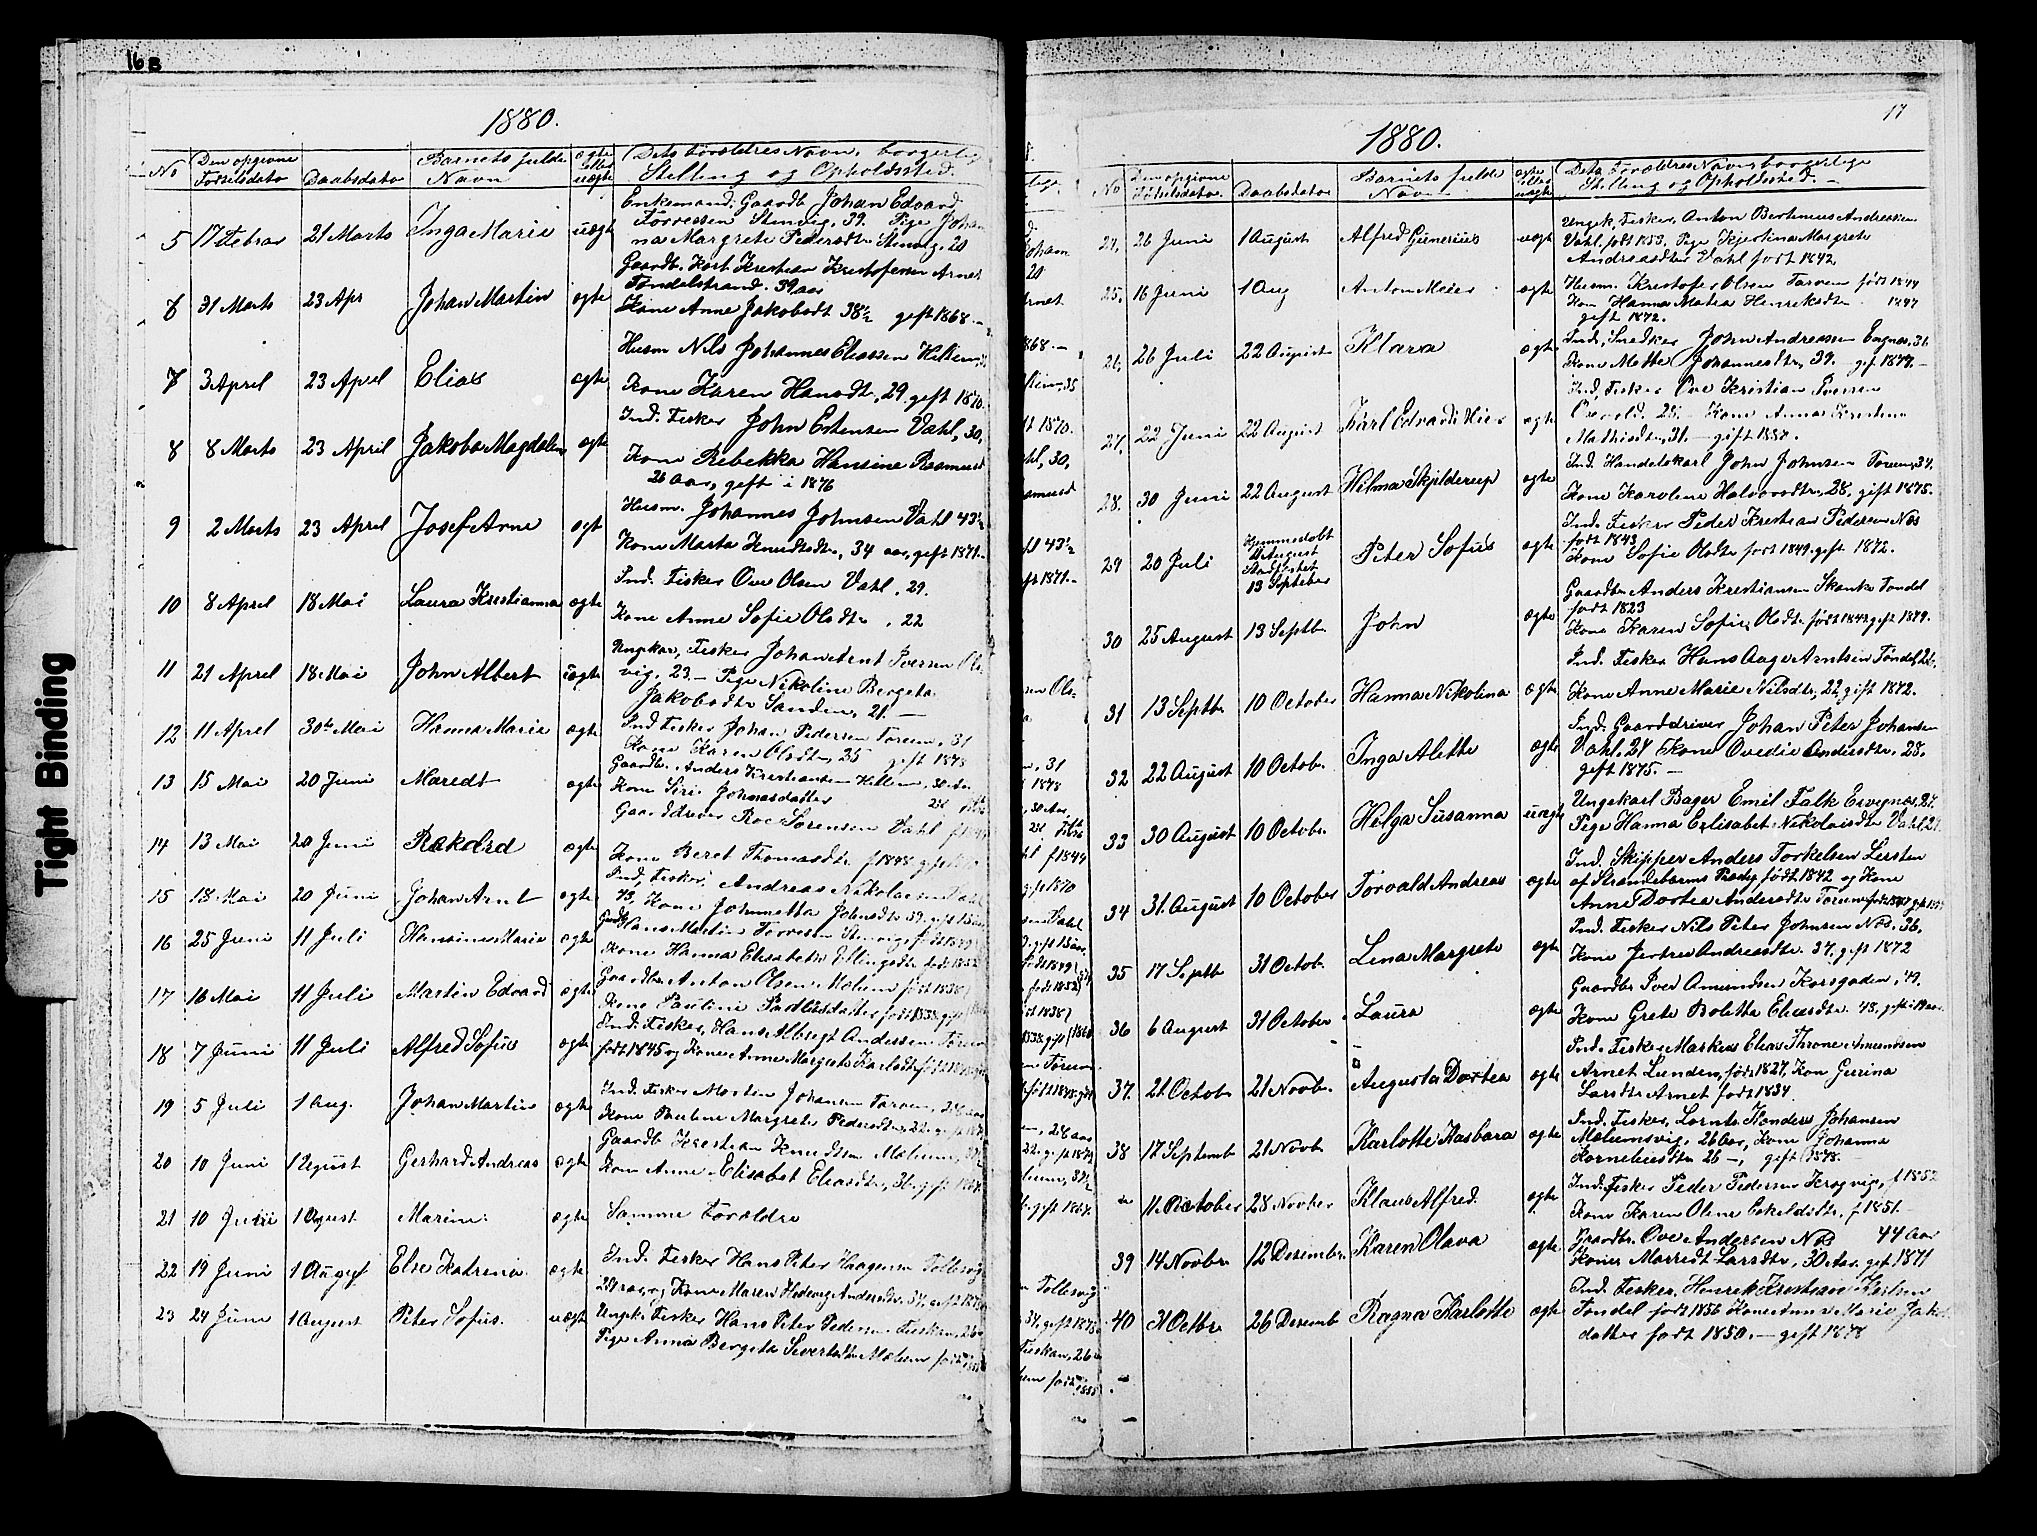 16 B
1880.
No
Den opgivne Fødselsdato
Daabsdato
Barnets fulde Navn
ægte eller uægte
Dets Forældres Navn, borgerlige Stilling og Opholdssted.
5 17 Febrar 21 Marts Inga Marie uægte Enkemand, Gaardb Johan Edvard
Torressen Stenvig, 39. Pige Johan
na Margrete Pedersdtr Stenvig, 20
6 31 Marts 23 Apr Johan Martin ægte Gaardb. Kort Krestian Kristofersen Arnet
Tøndelstrand. 39 aar
Kone Anne Jakobsdt 38½ gift 1868.
7 3 April 23 April Elias ægte Husm Nils Johannes Eliassen Hellem, 35
Kone Karen Hansdtr, 29, gift 1870.
8 8 Marts 23 April Jakoba Magdalena ægte Ind. Fisker John Estensen Vahl, 30,
Kone Rebekka Hansine Rasmusd
26 aar, gift i 1876
9 2 Marts 23 April Josef Arne ægt Husm. Johannes Johnsen Vahl 43½
Kone Marta Knudtsdtr, 34 aar, gift 1871.
10 8 April 18 Mai Laura Krestianna ægte Ind. Fisker Ove Olsen Vahl, 29.
Kone Anne Sofie Olsdtr, 22
11 21 April 18 Mai John Albert uægte Ungkar, Fisker Johan Arnt Iversen Ols
vig, 23. Pige Nikoline Bergeta
Jakobsdtr Sanden, 21.
12 11 April 30te Mai Hanna Marie ægte Ind Fisker Johan Pedersen Torum, 31
Kone Karen Olsdtr, 35 gift 1878
13 15 Mai 20 Juni Maredt ægte Gaardb. Anders Krestiansen Hellem, 30 Aar
Kone Siri Johnasdatter
14 13 Mai 20 Juni Rakel ægte Gaarddriver Roe Sørensen Vahl f 1849
Kone Beret Thomasdtr f 1848 gift 1870
15 18 Mai 20 Juni Johan Arnt ægte Ind, Fisker, Andreas Nikolaisen Vahl
43, Kone Johnnetta Johnsdtr 39. gift 15 aar
16 25 Juni 11 Juli Hansine Marie ægte Gaardb Hans Martin Torresen Stenvig født 1849
Kone Hanna Elisabeth Ellingsdtr født 1852
17 16 Mai 11 Juli Martin Edvard ægte Gaardbr Anton Olsen Mælum født 1838
Kone Pauline
18 7 Juni 11 Juli Alfred Sofus ægte Ind. Fisker, Hans Albregt Andersen Torum
født 1845 og Kone Anne Margrete Karlsdtr
19 5 Juli 1 Aug. Johan Martin ægte Ind. Fisker Morten Johansen Torum, 28 aar
Kone Pauline Margrete Pedersdtr, 22. gift
20 10 Juni 1 August Gerhard Andreas ægte Gaardb Krestian Knudssen Mælum, 37½
Kone Anne Elisabet Eliasdtr, 36. gift 1867.
21 10 Juni 1 August Marine. ægte Samme Forældre
22 19 Juni 1 August Else Katrine ægte Ind. Fisker Hans Peter Haagensen Tollesvig
29 aar, og Kone Maren Hedevig Andersdtr, 34, gift 1875
23 24 Juni 1 August Peter Sofus. uægte Ungk: Fisker Hans Peter Pedersen Fuskan, 26
Pige Anna Bergeta Sivertsdtr Mælum født 1855
Tight Binding
17
1880.
No
Den opgivne Fødselsdato.
Daabsdator
Barnets fulde Navn
ægte eller uægte
Dets Forældres Navn borgerlige Stilling og Opholdssted.
24. 26 Juni 1 August Alfred Gunerius uægte Ungk, Fisker, Anton Berhnus Andreassen
Vahl, født 1853, Pige Kjerstina Margrete
Andreasdtr Vahl født 1842
25. 16 Juni 1 Aug Anton Meier ægte Husm. Kristofer Olsen Tarvem født 1844
Kon Hanna Matea Henreksdtr 1847
gift 1872.
26, 26 Juli 22 August Klara ægte Ind, Snedker John Andreassen Engnæs, 31.
Kone Mette Johannesdtr, 39. gif 1877.
27. 22 Juni 22 August Karl Edvard ægte Ind, Fisker Ove Kristian Iversen
Kone Anna Krestine
Mathisdtr, 31. gift 1880.
28. 30 Juni 22 August Hilma Skjelderup ægte Ind. Handelskarl John Johnsen Torum, 34.
Kone Karoline Halvordtr, 28, gift 1875.
29 20 Juli Hjemmedøbt
August
Stadfæstet
13 Septeber Peter Sofus ægte Ind. Fisker Peder Krestian Pedersen Næs
født 1843
Kone Sofie Olsdtr født 1849. gift 1872.
30 25 August 13 Septb John ægte Gaardbr Anders Krestiansen Skanke Tøndel
født 1823
Kone Karen Sofie Olsdtr født 1842 gift 1879.
31 13 Septb 10 October Hanna Nikolina ægte Ind. Fisker Hans Aage Arntsen Tøndel, 26.
Kone Anne Marie Nilsdtr, 22, gift 1872.
32 22 August 10 Octob. Inga Alette ægte Ind. Gaarddriver Johan Peter Johansen
Vahl, 24 Kone Ovedie Andersdtr. 28.
gift 1875.
33 30 August 10 Octob. Helga Susanna uægte Ungekarl Bager Emil Falk Esvegnæs, 27.
Pige Hanna Erlisabet Nikolaisdtr Vahl, 21
34 31. August 10 October Torvald Andreas ægte Ind. Skipper Anders Torkelsen Lersten
af Strandebarms Prædg født 1842 og Kone
Anne Dortea Andersdtr Torum
35 17 Septb 31 Octob. Lena Margrete ægte Ind. Fisker Nils Peter Johnsen Næs. 36,
Kone Jertru Andreasdtr. 37. gift 1872
36 6 August 31 October Laura ægte Gaardbr Iver Amundsen Korsgaden, 49.
Kone Grete Boletta Eliasdtr. 48, gift i 19 aar.
37. 21 Octobr 21 Novbr. Augusta Dortea ægte Ind. Fisker Markus Elias Throne Amundsen
Arnet Lunden, født 1827, Kon Gurina
Larsdtr Arnet født 1834
38 17 Septemb 21 Novb. Karlotte Hasbara ægte Ind. Fisker, Lornts Honders Johansen
Mælumsvig, 26 Aar, Kone Johanna
Korneliusdtr 26 gift 1878.
11. October 28 Novber Klaus Alfred ægte Ind. Fisker Peder Pedersen Krogvig, f 1852
Kone Karen Oline Eskeldsdtr. f 1851.
39 14 Novbr. 12 Desembr. Karen Olava ægte Gaardbr. Ove Andersen Næs 44 Aar
Kone Marredt Larsdtr, 30 Aar. gif 1871
40 31 Octbr 26 Desemb Ragna Karlotte ægte Ind. Fisker, Henrek Krestian
Tøndel født 1856 Kone Anna Marie Jakobs
datter født 1850. gift 1878